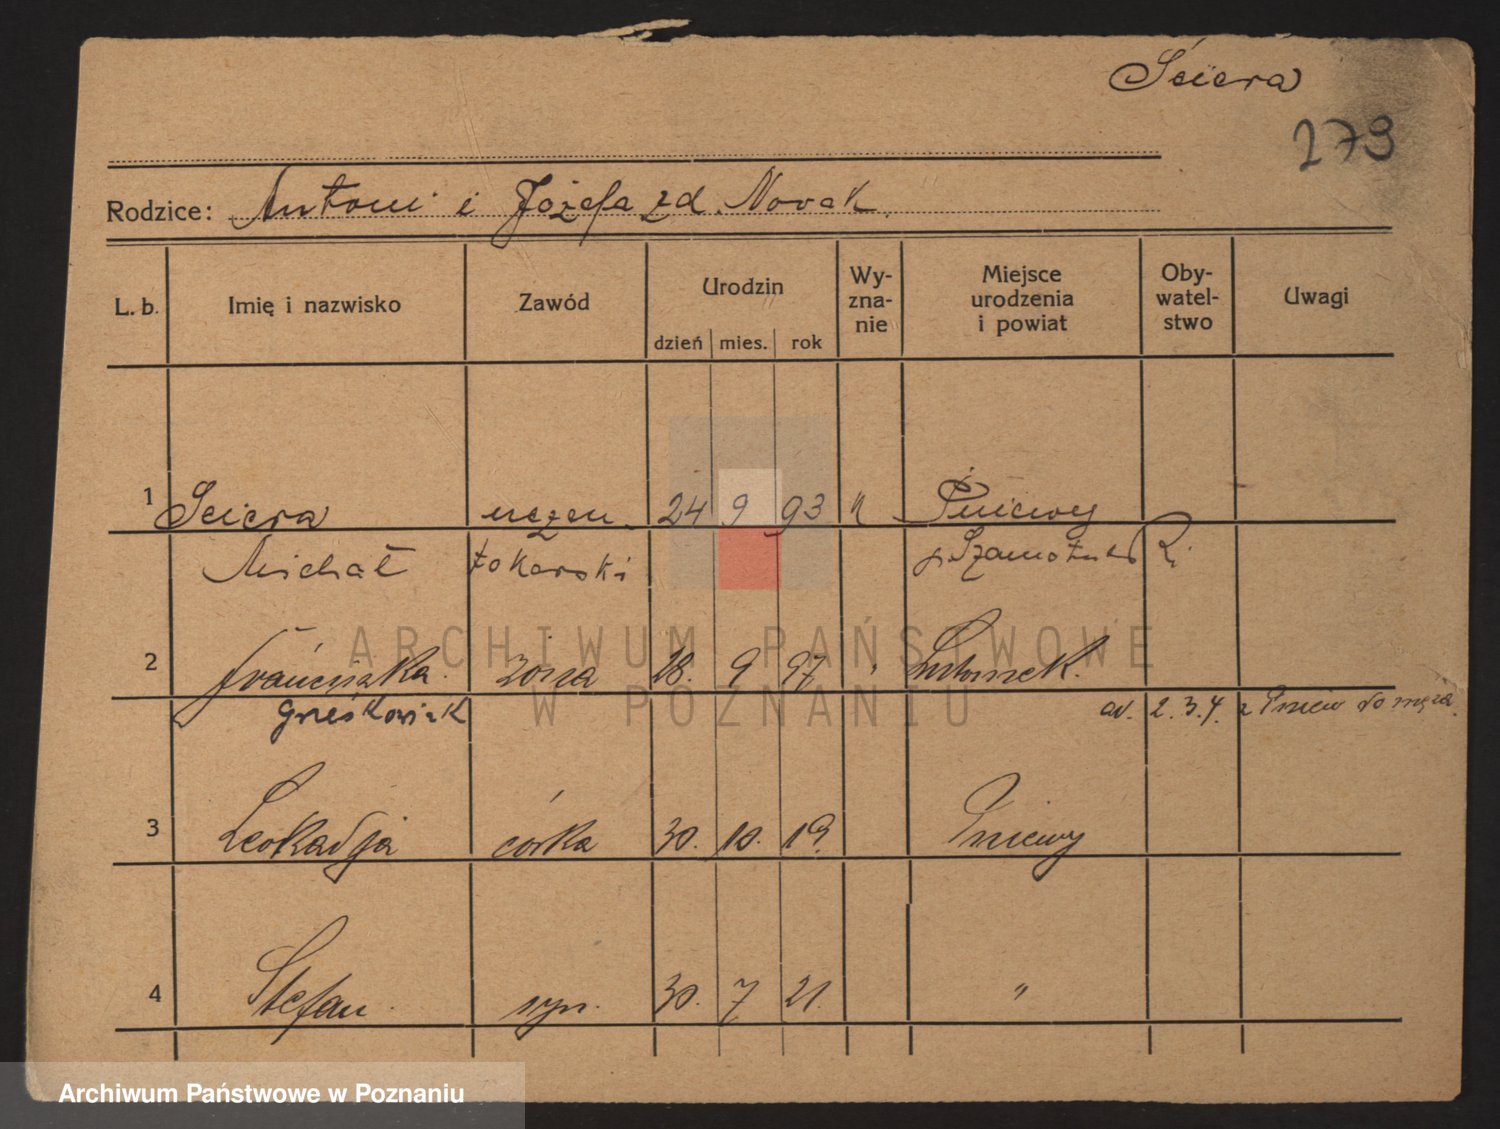 Sciera
279
Rodzice: Antoni i Józefa zd. Novak.
L. b. Imię i nazwisko Zawód Urodzin dzień mies. rok Wy-zna-nie Miejsce urodzenia i powiat Oby-watel-stwo Uwagi
1 Sciera uczeń 24 9 93 Pniewy
Michał tokarski p. Szamotuły
2 Franciszka żona 28. 9 97 " Lutomek.
Grześkowiak 2.3.4. z Pniew do męża.
3 Leokadja córka 30. 10. 19. Pniewy
4 Stefan syn. 30. 7 21. "
ARCHIWUM PAŃSTWOWE
W POZNANIU
Archiwum Państwowe w Poznaniu